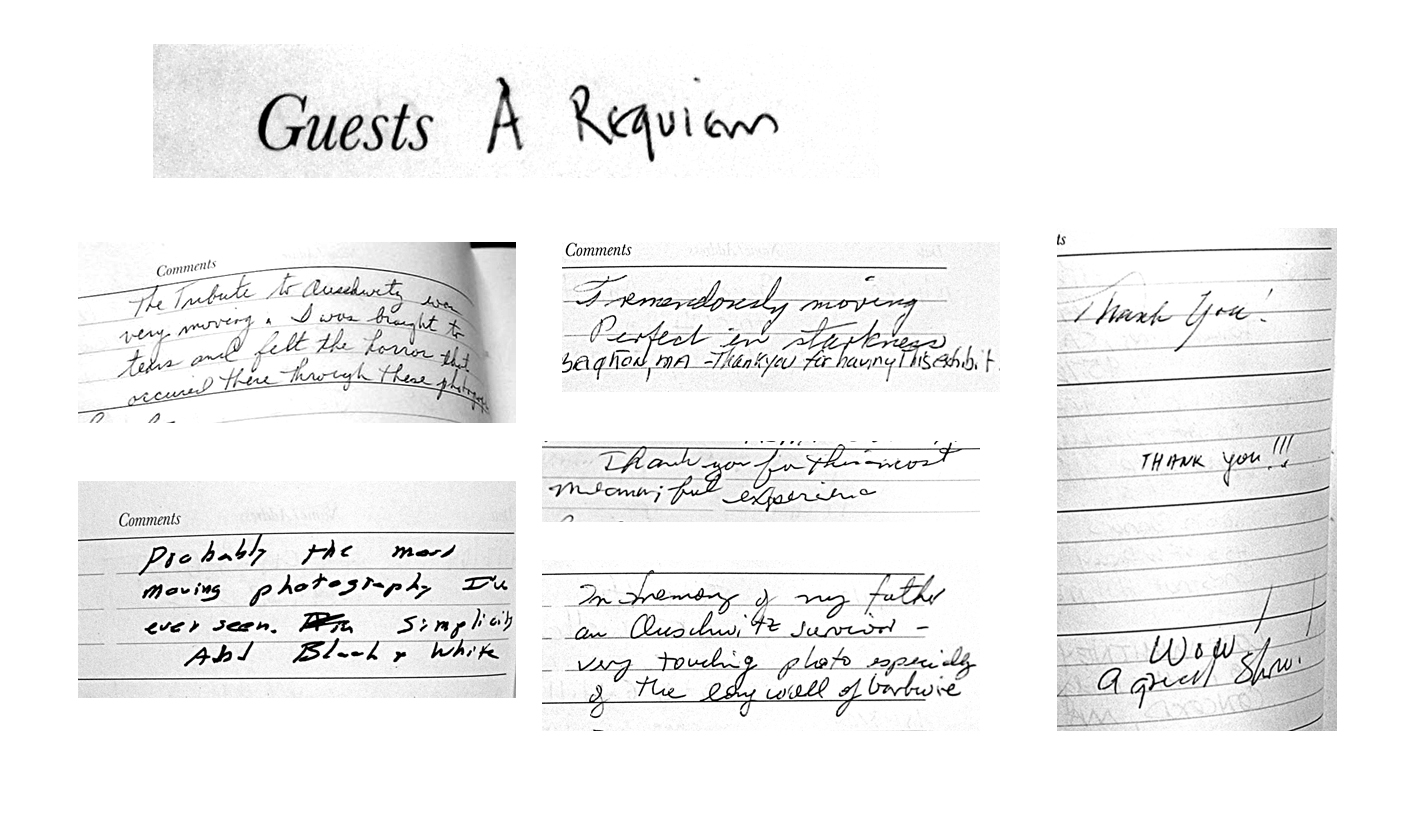 Guests A Requiem
Comments
The Tribute to Auschwitz was
very moving. I was brought to
tears and felt the horror that
occured there through these
Comments
Probably the most
moving photography I've
ever seen. Simplicity
And Black & White
Comments
Tremendously moving
Perfect in starkness
MA - Thank you for having This exhibit.
Thank you for this most
meaningful experience
In memory of my father
an Auschwitz survivor -
very touching photo especially
of the long wall of barbwire
ts
Thank You!
THANK you!!!
Wow
A great Show.